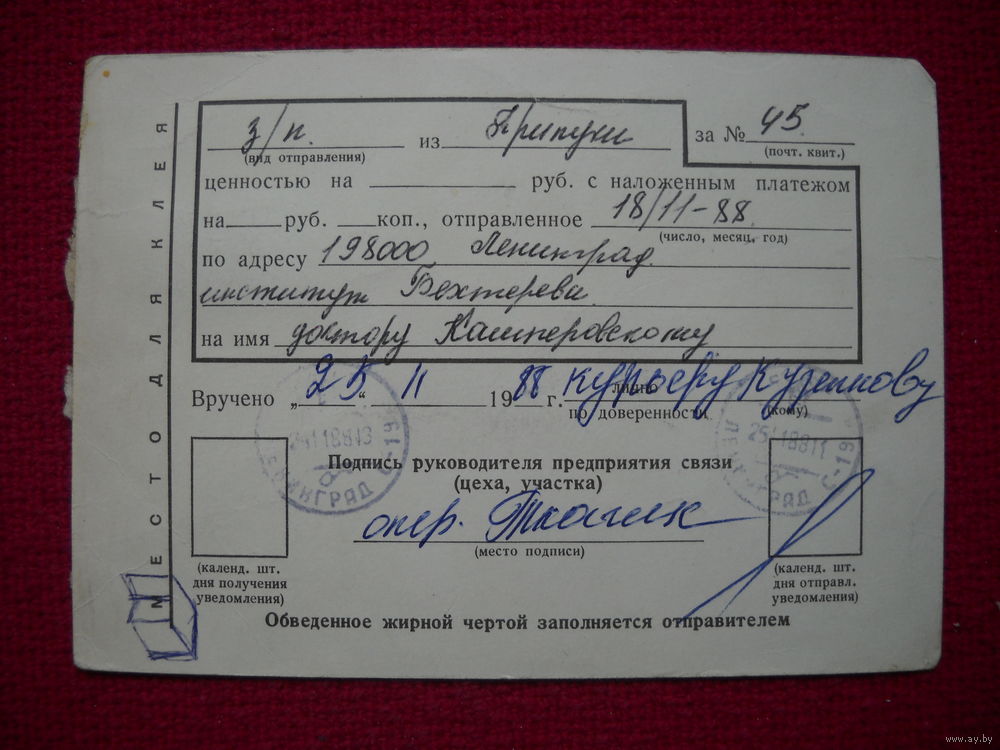 з/п. из за № 45
(вид отправления) (почт. квит.)
ценностью на руб. с наложенным платежом
на руб. коп., отправленное 18/11-88.
(число, месяц, год)
по адресу 198000 Ленинград
институт Бехтерева.
на имя доктору Кашперовскому
Вручено „25“ 11 1988 г. лично курьеру Кузенкову
по доверенности (кому)
Подпись руководителя предприятия связи
(цеха, участка)
опер.
(место подписи)
(календ. шт.
дня получения
уведомления)
(календ. шт.
дня отправл.
уведомления)
Обведенное жирной чертой заполняется отправителем
МЕСТО ДЛЯ КЛЕЯ
ЛЕНИНГРАД С-19
www.ay.by